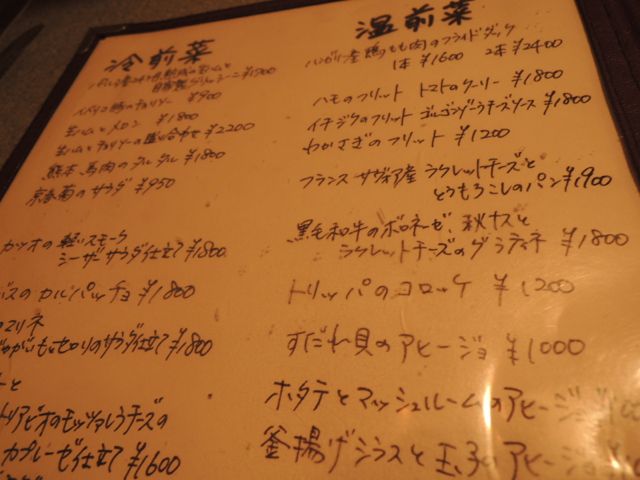 冷前菜
24ヶ月熟成の生ハムと
自家製グリッシーニ ¥1700
イベリコ豚のチョリソー ¥900
生ハムとメロン ¥1800
生ハムとチョリソーの盛り合わせ ¥2200
熊本 馬肉のタルタル ¥1800
京春菊のサラダ ¥950
カツオの軽いスモーク
シーザーサラダ仕立て ¥1800
のカルパッチョ ¥1800
マリネ
じゃがいもとセロリのサラダ仕立て ¥1800
と
のモッツァレラチーズの
カプレーゼ仕立て ¥1600
温前菜
ハンガリー産鴨もも肉のフライドダック
1本 ¥1600 2本 ¥2400
ハモのフリット トマトのクーリー ¥1800
イチジクのフリット ゴルゴンゾーラチーズソース ¥1800
わかさぎのフリット ¥1200
フランス サヴォア産 ラクレットチーズと
とうもろこしのパン ¥1900
黒毛和牛のボロネーゼ、秋ナスと
ラクレットチーズのグラティネ ¥1800
トリッパのコロッケ ¥1200
すだれ貝のアヒージョ ¥1000
ホタテとマッシュルームのアヒージョ
釜揚げシラスと玉子のアヒージョ